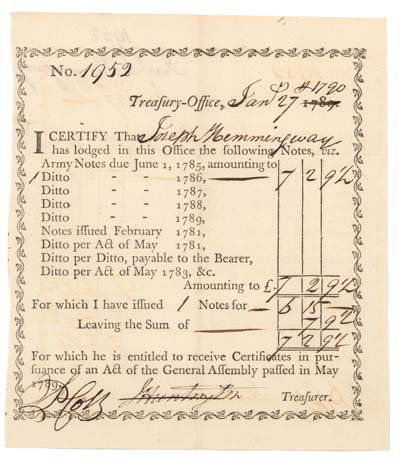 No. 1952
Treasury-Office, Jan 27th 1789. 1790
I CERTIFY That Joseph Hemmingway
has lodged in this Office the following Notes, viz.
Army Notes due June 1, 1785, amounting to
1 Ditto - - 1786, 7 2 9½
Ditto - - 1787,
Ditto - - 1788,
Ditto - - 1789,
Notes issued February 1781,
Ditto per Act of May 1781,
Ditto per Ditto, payable to the Bearer,
Ditto per Act of May 1783, &c.
Amounting to £. 7 2 9½
For which I have issued 1 Notes for 6 15
Leaving the Sum of 7 9½
7 2 9½
For which he is entitled to receive Certificates in pur-
suance of an Act of the General Assembly passed in May
1789.
J Huntington Treasurer.